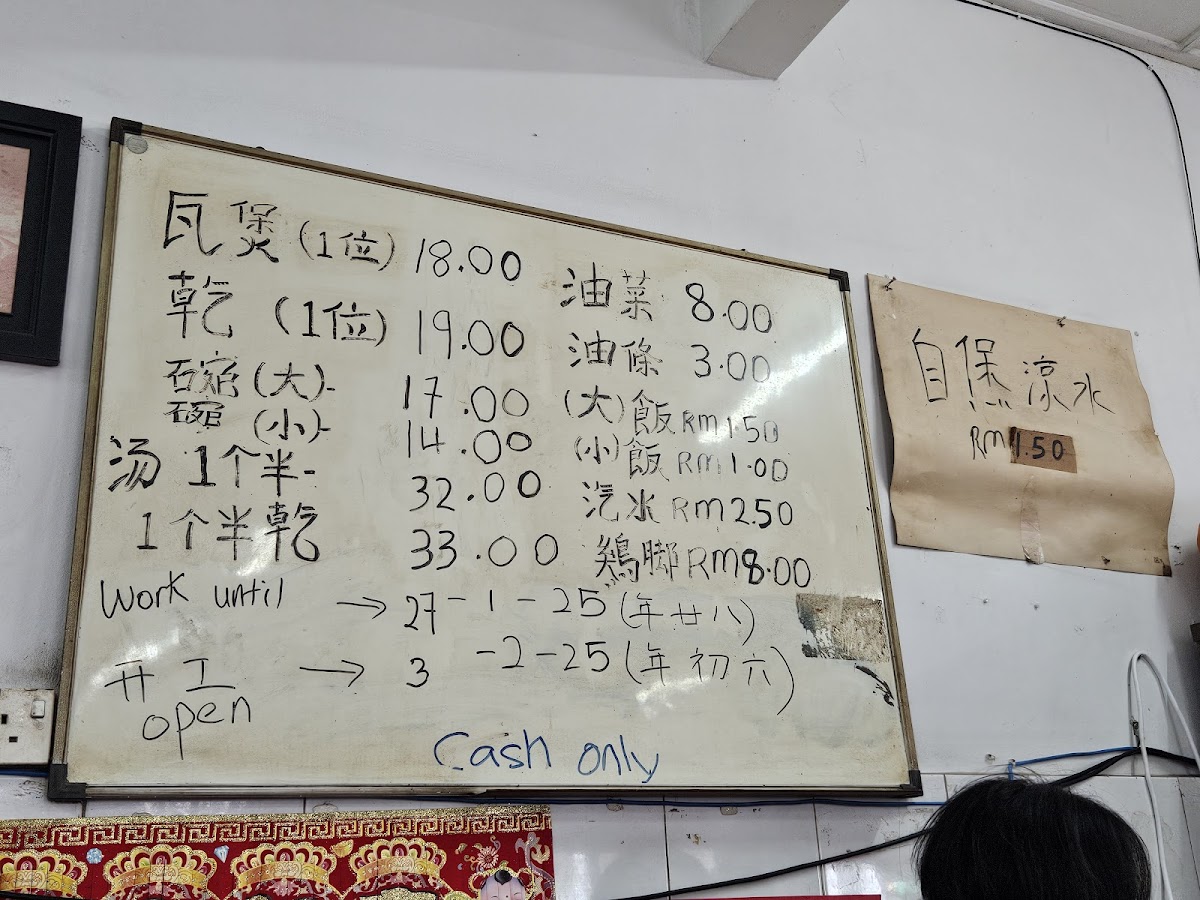 瓦煲 (1位) 18.00
乾 (1位) 19.00
碗 (大)- 17.00
碗 (小)- 14.00
汤 1个半- 32.00
1个半乾 33.00
油菜 8.00
油條 3.00
(大)飯 RM1.50
(小)飯 RM1.00
汽水 RM2.50
鷄脚 RM8.00
Work until → 27-1-25 (年廿八)
开工 → 3-2-25 (年初六)
open
Cash only
自煲凉水
RM1.50